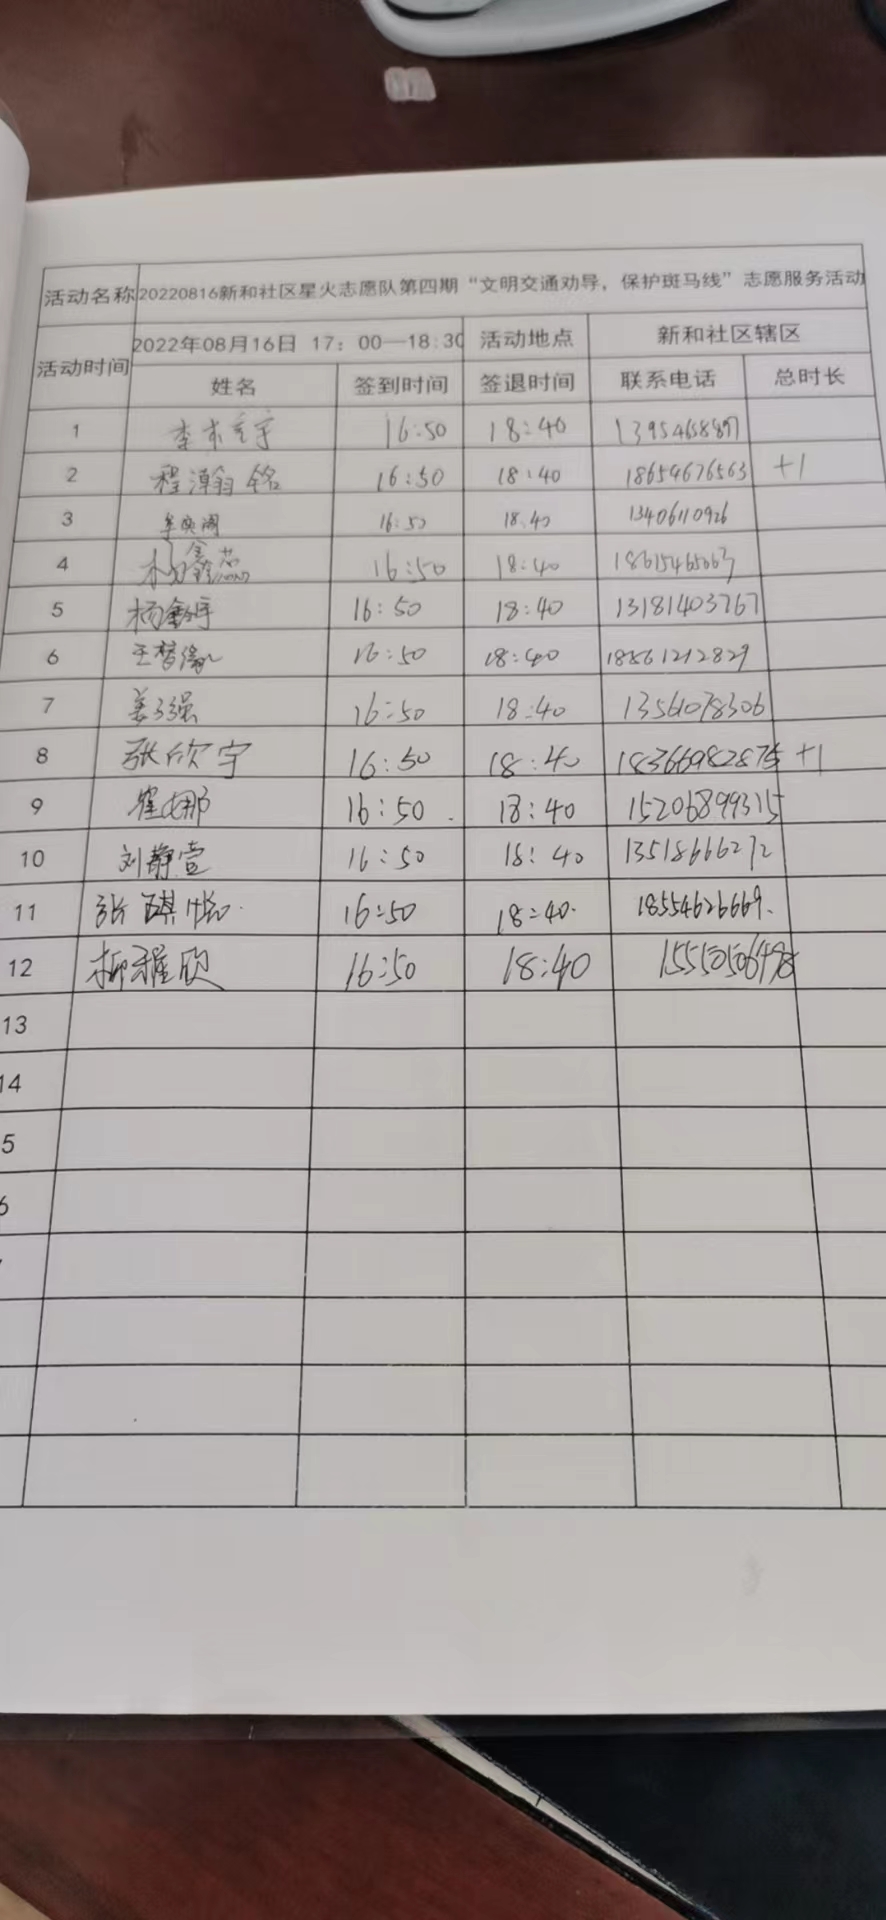 活动名称 20220816新和社区星火志愿队第四期“文明交通劝导，保护斑马线”志愿服务活动
活动时间 2022年08月16日 17：00—18:30 活动地点 新和社区辖区
姓名 签到时间 签退时间 联系电话 总时长
1 李 宇 16:50 18:40
2 程瀚铭 16:50 18:40 18659676563 +1
3 16:50 18:40 13406110926
4 杨鑫蕊 16:50 18:40 18615465063
5 杨鑫宇 16:50 18:40 13181403767
6 王梦缘 16:50 18:40 18561212829
7 姜子强 16:50 18:40 13561078306
8 张欣宇 16:50 18:40 18366982875 +1
9 崔娜 16:50 18:40 15206899315
10 刘静萱 16:50 18:40 13518666272
11 张琪悦 16:50 18:40 18554626669
12 柳雅欣 16:50 18:40 15550506498
13
14
5
6